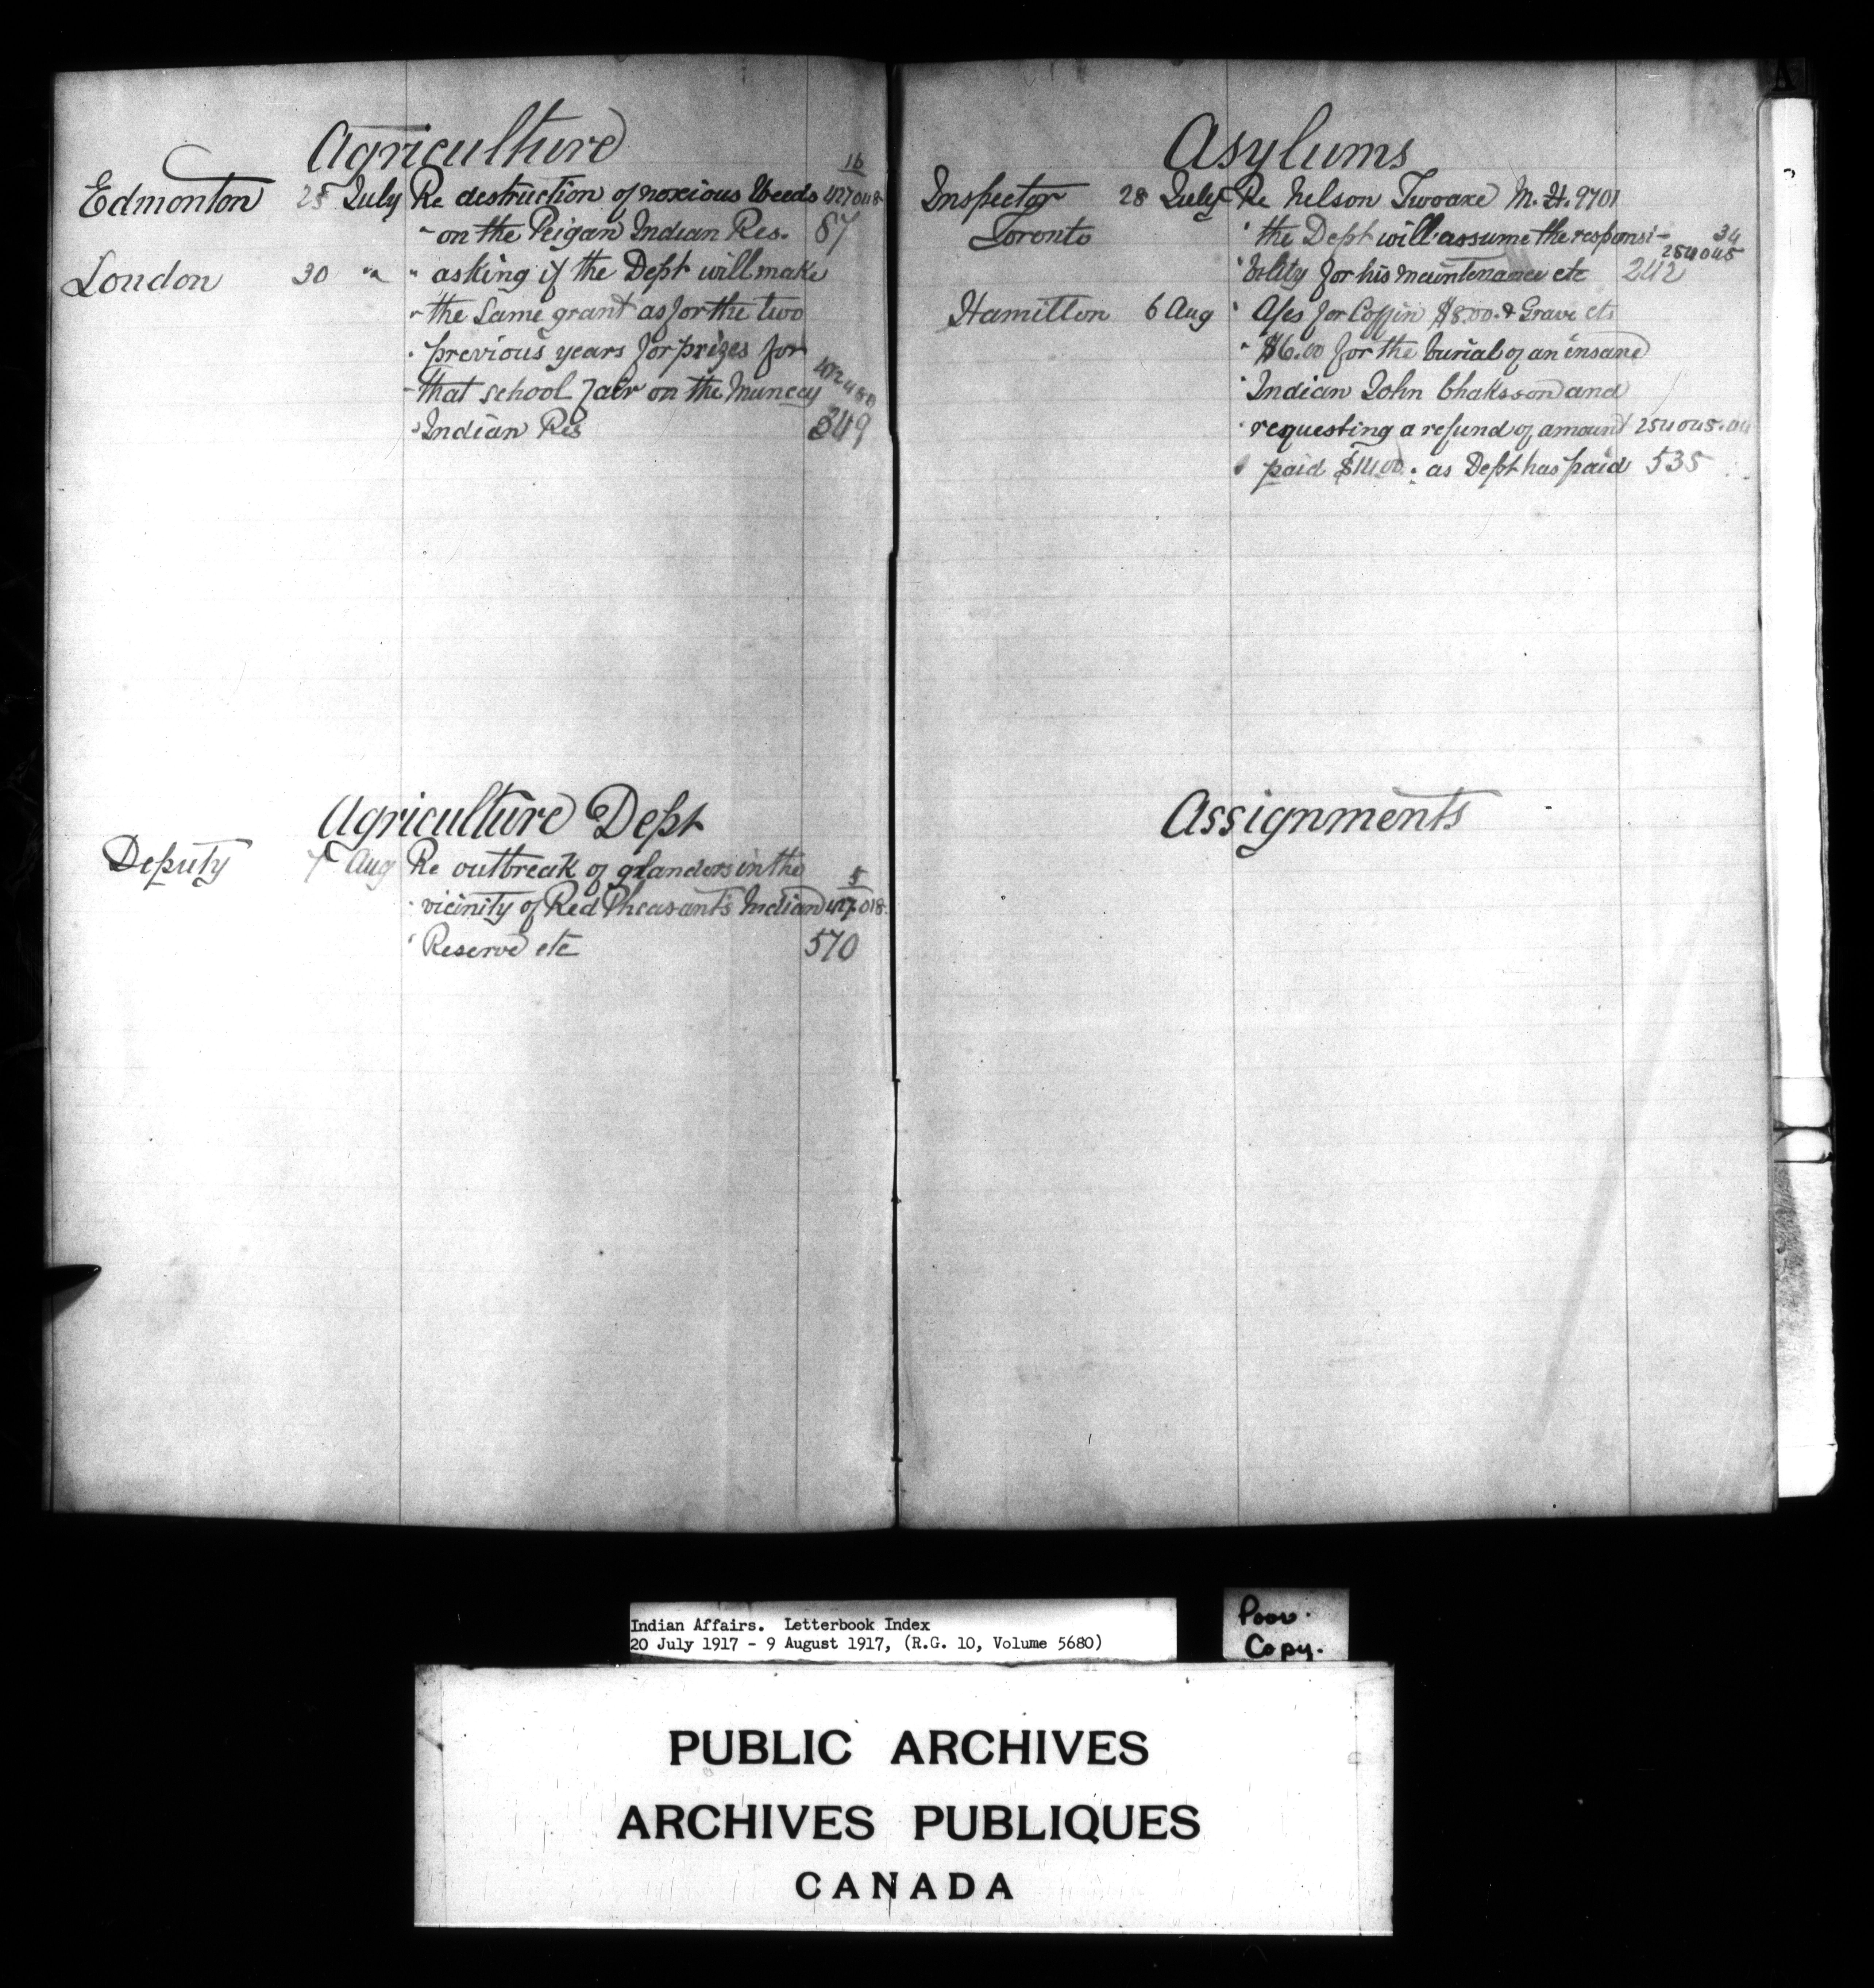 Agriculture
16
Edmonton 25 July Re destruction of noxious Weeds 427048
" on the Peigan Indian Res. 87
London 30 " " asking if the Dept will make
" the Same grant as for the two
" previous years for prizes for
" that school fair on the Muncey
" Indian Res 349
Agriculture Dept
Deputy 7 Aug Re outbreak of glanders in the 5
" vicinity of Red Pheasant's Indian 427.018
" Reserve etc 570
A
Asylums
Inspector 28 July Re Nelson Twoaxe M. H. 9701
Toronto " the Dept will assume the responsi- 34
254045
" bility for his maintenance etc 242
Hamilton 6 Aug " A/cs for Coffin $8.00. & Grave etc
" $6.00 for the burial of an insane
" Indian John and
" requesting a refund of amount 254045.
" paid $14.00. as Dept has paid 535
Assignments
Indian Affairs. Letterbook Index
20 July 1917 - 9 August 1917, (R.G. 10, Volume 5680)
Poor.
Copy.
PUBLIC ARCHIVES
ARCHIVES PUBLIQUES
CANADA